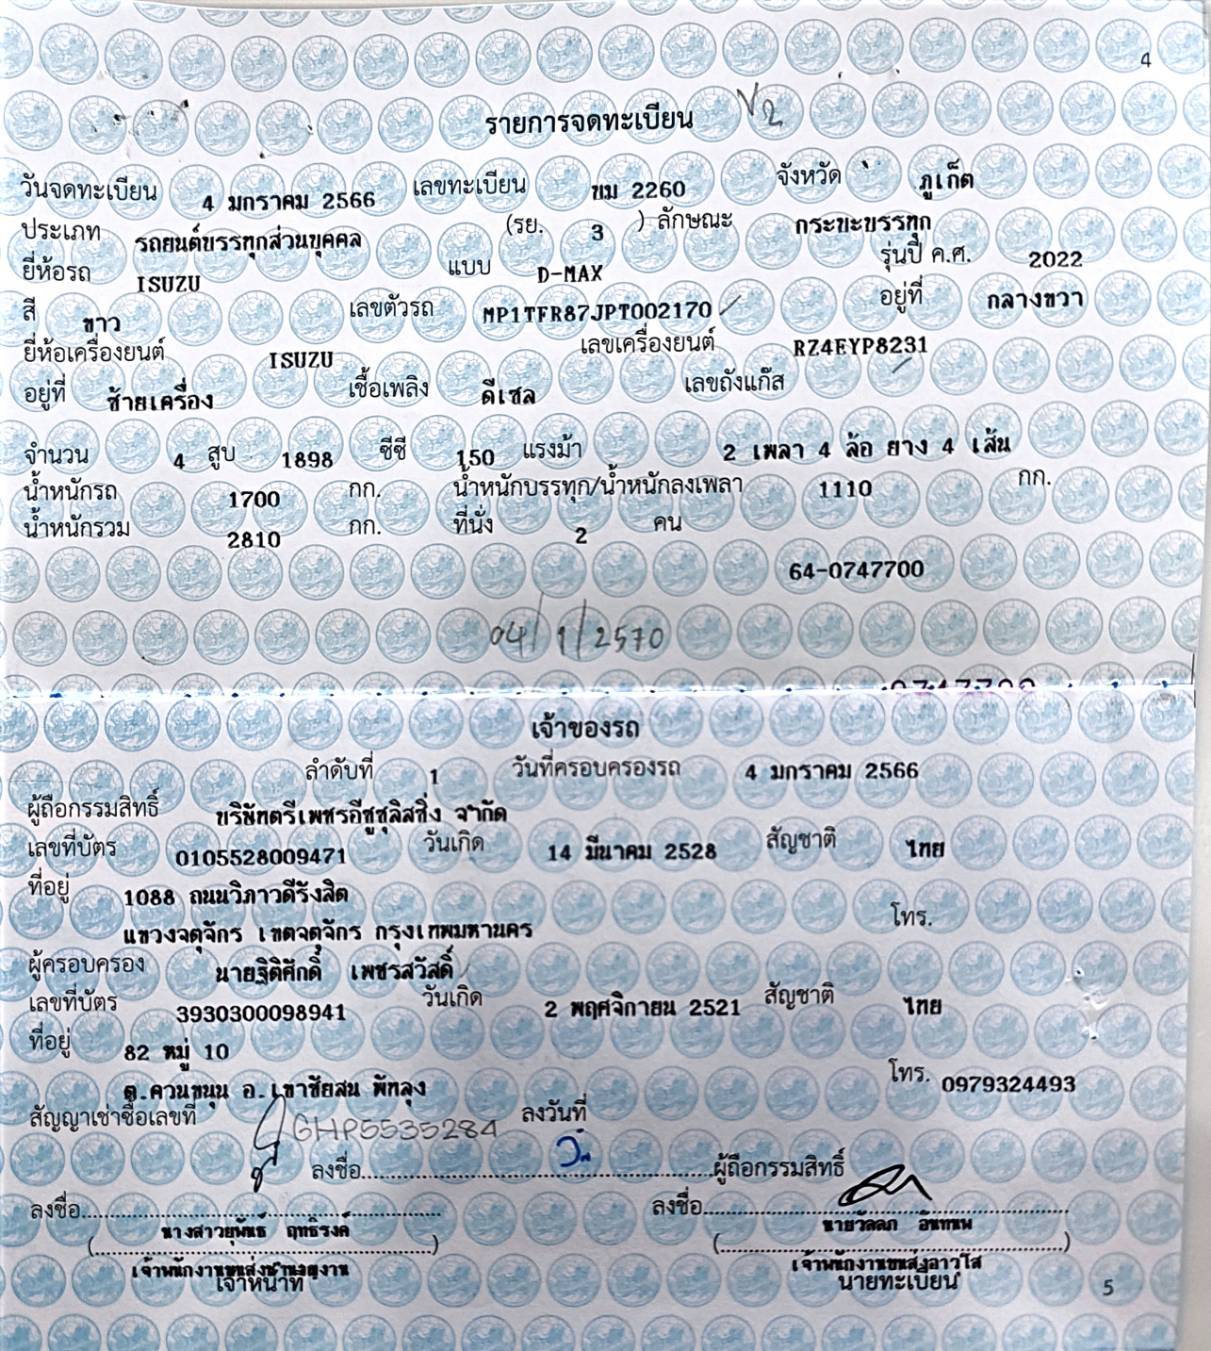 4
รายการจดทะเบียน V2
วันจดทะเบียน 4 มกราคม 2566 เลขทะเบียน ขม 2260 จังหวัด ภูเก็ต
ประเภท รถยนต์บรรทุกส่วนบุคคล (รย. 3 ) ลักษณะ กระบะบรรทุก
ยี่ห้อรถ ISUZU แบบ D-MAX รุ่นปี ค.ศ. 2022
สี ขาว เลขตัวรถ MP1TFR87JPT002170 อยู่ที่ กลางขวา
ยี่ห้อเครื่องยนต์ ISUZU เลขเครื่องยนต์ RZ4EYP8231
อยู่ที่ ซ้ายเครื่อง เชื้อเพลิง ดีเซล เลขถังแก๊ส
จำนวน 4 สูบ 1898 ซีซี 150 แรงม้า 2 เพลา 4 ล้อ ยาง 4 เส้น
น้ำหนักรถ 1700 กก. น้ำหนักบรรทุก/น้ำหนักลงเพลา 1110 กก.
น้ำหนักรวม 2810 กก. ที่นั่ง 2 คน
64-0747700
04/1/2570
เจ้าของรถ
ลำดับที่ 1 วันที่ครอบครองรถ 4 มกราคม 2566
ผู้ถือกรรมสิทธิ์ บริษัทตรีเพชรอีซูซุลิสซิ่ง จำกัด
เลขที่บัตร 0105528009471 วันเกิด 14 มีนาคม 2528 สัญชาติ ไทย
ที่อยู่ 1088 ถนนวิภาวดีรังสิต
แขวงจตุจักร เขตจตุจักร กรุงเทพมหานคร โทร.
ผู้ครอบครอง นายฐิติศักดิ์ เพชรสวัสดิ์
เลขที่บัตร 3930300098941 วันเกิด 2 พฤศจิกายน 2521 สัญชาติ ไทย
ที่อยู่ 82 หมู่ 10
ต.ควนขนุน อ.เขาชัยสน พัทลุง โทร. 0979324493
สัญญาเช่าซื้อเลขที่ GHP5535284 ลงวันที่
ลงชื่อ........ผู้ถือกรรมสิทธิ์
ลงชื่อ........ ลงชื่อ........
นางสาวยุพันธ์ ฤทธิรงค์ นายวัลลภ อินทนพ
(........) (........)
เจ้าพนักงานขนส่งชำนาญงาน เจ้าพนักงานขนส่งอาวุโส
เจ้าหน้าที่ นายทะเบียน
5